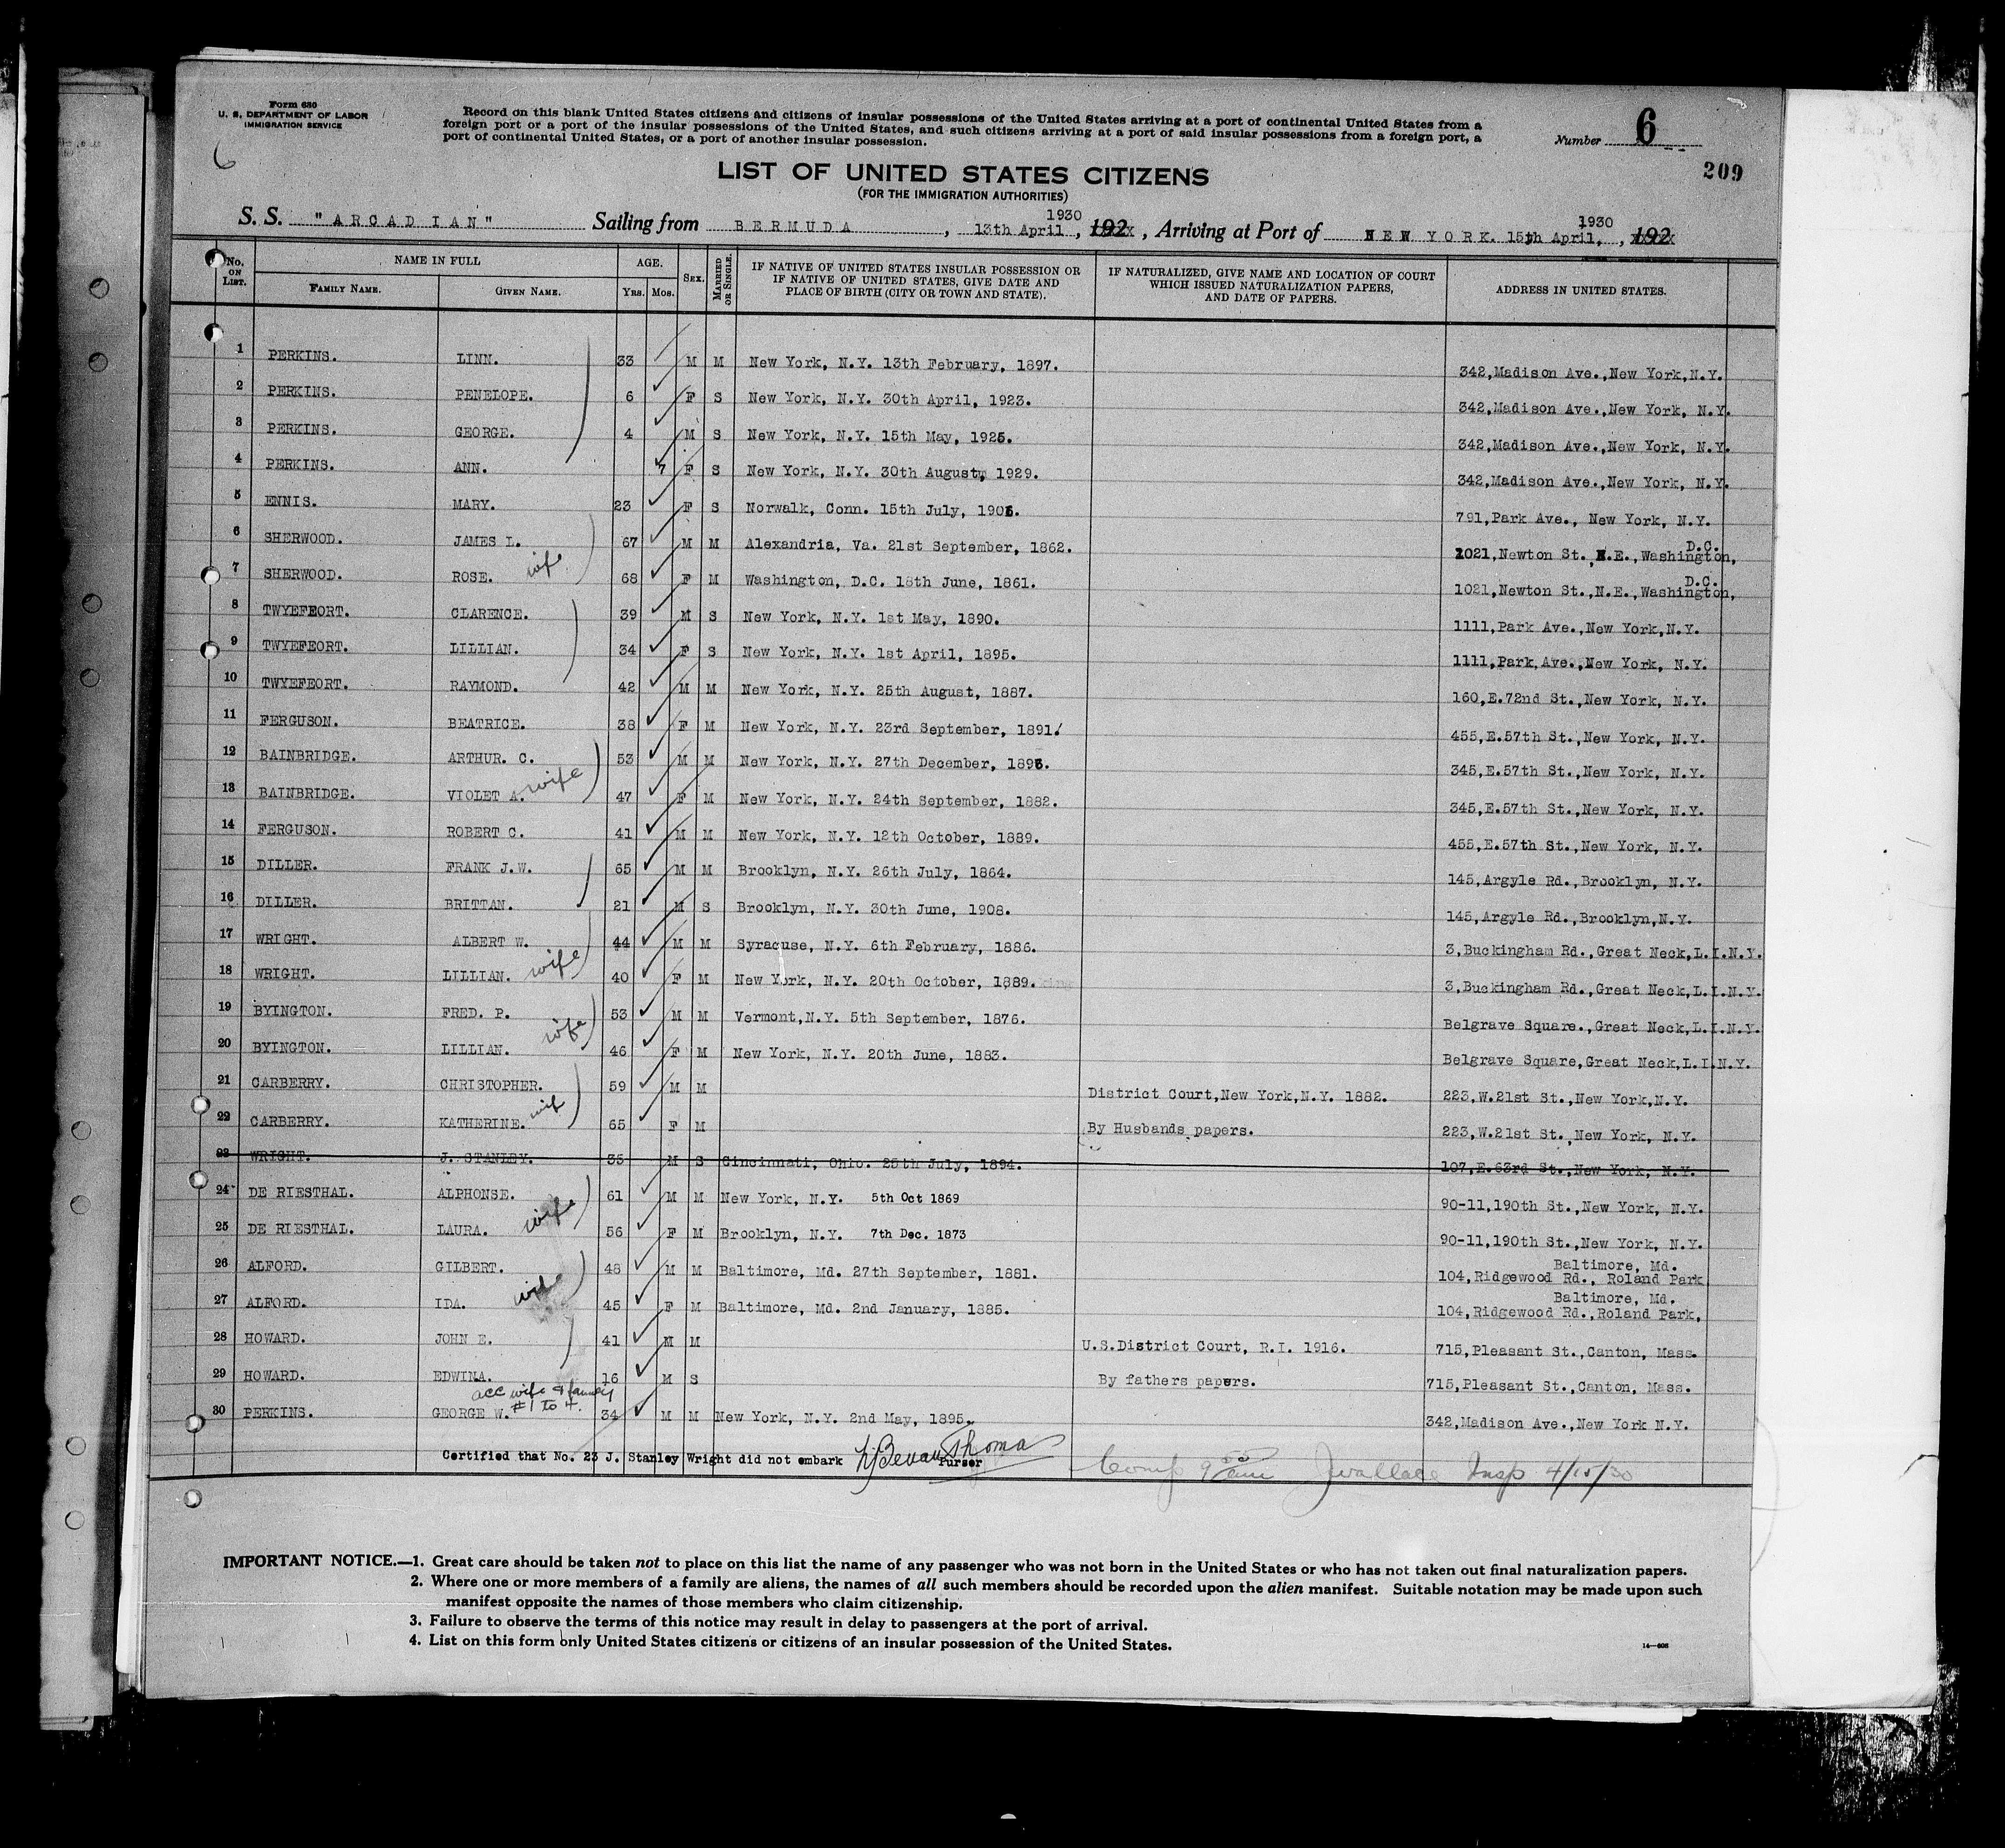 Form 630
U. S. DEPARTMENT OF LABOR
IMMIGRATION SERVICE
6
Record on this blank United States citizens and citizens of insular possessions of the United States arriving at a port of continental United States from a
foreign port or a port of the insular possessions of the United States, and such citizens arriving at a port of said insular possessions from a foreign port, a
port of continental United States, or a port of another insular possession.
Number 6
209
LIST OF UNITED STATES CITIZENS
(FOR THE IMMIGRATION AUTHORITIES)
S. S. "ARCADIAN" Sailing from BERMUDA, 13th April 1930, 192, Arriving at Port of NEW YORK. 15th April, 1930, 192
No. ON LIST.
NAME IN FULL
FAMILY NAME.
GIVEN NAME.
AGE.
YRS. MOS.
SEX.
MARRIED OR SINGLE.
IF NATIVE OF UNITED STATES INSULAR POSSESSION OR
IF NATIVE OF UNITED STATES, GIVE DATE AND
PLACE OF BIRTH (CITY OR TOWN AND STATE).
IF NATURALIZED, GIVE NAME AND LOCATION OF COURT
WHICH ISSUED NATURALIZATION PAPERS,
AND DATE OF PAPERS.
ADDRESS IN UNITED STATES.
1 PERKINS. LINN. 33 M M New York, N.Y. 13th February, 1897. 342,Madison Ave.,New York,N.Y.
2 PERKINS. PENELOPE. 6 F S New York, N.Y. 30th April, 1923. 342,Madison Ave.,New York, N.Y.
3 PERKINS. GEORGE. 4 M S New York, N.Y. 15th May, 1925. 342,Madison Ave.,New York, N.Y.
4 PERKINS. ANN. 7 F S New York, N.Y. 30th August, 1929. 342,Madison Ave.,New York, N.Y.
5 ENNIS. MARY. 23 F S Norwalk, Conn. 15th July, 1906. 791,Park Ave., New York, N.Y.
6 SHERWOOD. JAMES L. 67 M M Alexandria, Va. 21st September, 1862. 1021,Newton St.,N.E.,Washington, D.C.
7 SHERWOOD. ROSE. wife 68 F M Washington, D.C. 18th June, 1861. 1021,Newton St.,N.E.,Washington, D.C.
8 TWYEFEORT. CLARENCE. 39 M S New York, N.Y. 1st May, 1890. 1111,Park Ave.,New York,N.Y.
9 TWYEFEORT. LILLIAN. 34 F S New York, N.Y. 1st April, 1895. 1111,Park,Ave.,New York, N.Y.
10 TWYEFEORT. RAYMOND. 42 M M New York, N.Y. 25th August, 1887. 160,E.72nd St.,New York, N.Y.
11 FERGUSON. BEATRICE. 38 F M New York, N.Y. 23rd September, 1891. 455,E.57th St.,New York, N.Y.
12 BAINBRIDGE. ARTHUR. C. 53 M M New York, N.Y. 27th December, 345,E.57th St.,New York, N.Y.
13 BAINBRIDGE. VIOLET A. wife 47 F M New York, N.Y. 24th September, 1882. 345,E.57th St.,New York, N.Y.
14 FERGUSON. ROBERT C. 41 M M New York, N.Y. 12th October, 1889. 455,E.57th St.,New York, N.Y.
15 DILLER. FRANK J.W. 65 M M Brooklyn, N.Y. 26th July, 1864. 145,Argyle Rd.,Brooklyn, N.Y.
16 DILLER. BRITTAN. 21 M S Brooklyn, N.Y. 30th June, 1908. 145,Argyle Rd.,Brooklyn,N.Y.
17 WRIGHT. ALBERT W. 44 M M Syracuse, N.Y. 6th February, 1886. 3,Buckingham Rd.,Great Neck,L.I.N.Y.
18 WRIGHT. LILLIAN. wife 40 F M New York, N.Y. 20th October, 1889. 3,Buckingham Rd.,Great Neck,L.I.N.Y.
19 BYINGTON. FRED. P. 53 M M Vermont,N.Y. 5th September, 1876. Belgrave Square.,Great Neck,L.I.N.Y.
20 BYINGTON. LILLIAN. wife 46 F M New York, N.Y. 20th June, 1883. Belgrave Square,Great Neck,L.I.N.Y.
21 CARBERRY. CHRISTOPHER. 59 M M District Court,New York,N.Y. 1882. 223,W.21st St.,New York,N.Y.
22 CARBERRY. KATHERINE. wife 65 F M By Husbands papers. 223,W.21st St.,New York, N.Y.
23 WRIGHT. J. STANLEY. 35 M S Cincinnati, Ohio. 25th July, 1894. 107,E.63rd St.,New York, N.Y.
24 DE RIESTHAL. ALPHONSE. 61 M M New York, N.Y. 5th Oct 1869 90-11,190th St.,New York, N.Y.
25 DE RIESTHAL. LAURA. wife 56 F M Brooklyn, N.Y. 7th Dec. 1873 90-11,190th St.,New York, N.Y.
26 ALFORD. GILBERT. 48 M M Baltimore, Md. 27th September, 1881. 104,Ridgewood Rd., Roland Park Baltimore, Md.
27 ALFORD. IDA. wife 45 F M Baltimore, Md. 2nd January, 1885. 104,Ridgewood Rd.,Roland Park, Baltimore, Md.
28 HOWARD. JOHN E. 41 M M U.S.District Court, R.I. 1916. 715,Pleasant St.,Canton, Mass.
29 HOWARD. EDWINA. 16 M S By fathers papers. 715,Pleasant St.,Canton, Mass.
acc wife & family
#1 to 4.
30 PERKINS. GEORGE W. 34 M M New York, N.Y. 2nd May, 1895. 342,Madison Ave.,New York N.Y.
Certified that No. 23 J. Stanley Wright did not embark Bevan Thomas Purser
Comp 9 55 am JWallace Insp 4/15/30
IMPORTANT NOTICE.—1. Great care should be taken not to place on this list the name of any passenger who was not born in the United States or who has not taken out final naturalization papers.
2. Where one or more members of a family are aliens, the names of all such members should be recorded upon the alien manifest. Suitable notation may be made upon such
manifest opposite the names of those members who claim citizenship.
3. Failure to observe the terms of this notice may result in delay to passengers at the port of arrival.
4. List on this form only United States citizens or citizens of an insular possession of the United States.
14—608